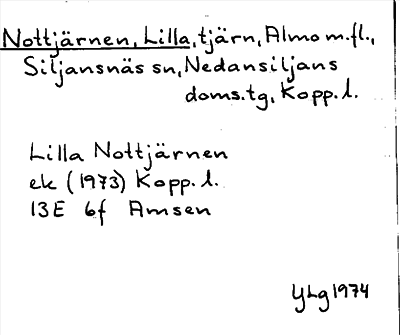 Nottjärnen, Lilla, tjärn, Almo m.fl.,
Siljansnäs sn, Nedansiljans
doms.tg, Kopp.l.
Lilla Nottjärnen
ek (1973) Kopp.l.
13E 6f Amsen
YLg 1974